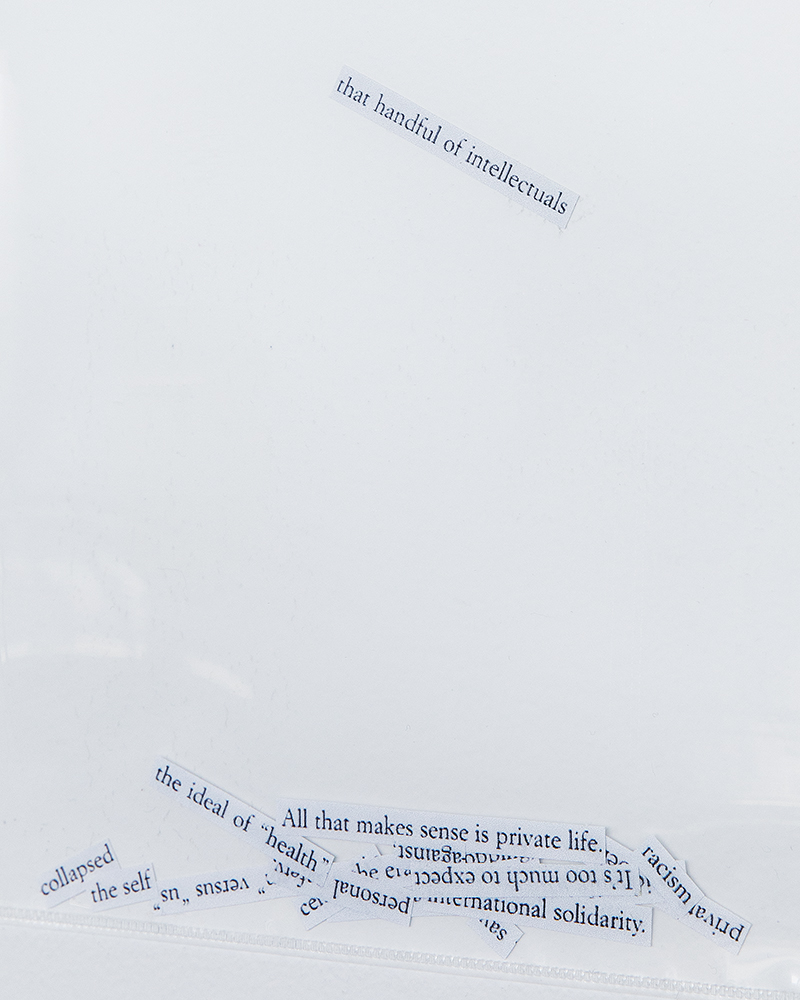 that handful of intellectuals
the ideal of “health”
All that makes sense is private life.
collapsed
the self
versus “us”
It’s too much to expect
personal
international solidarity.
racism